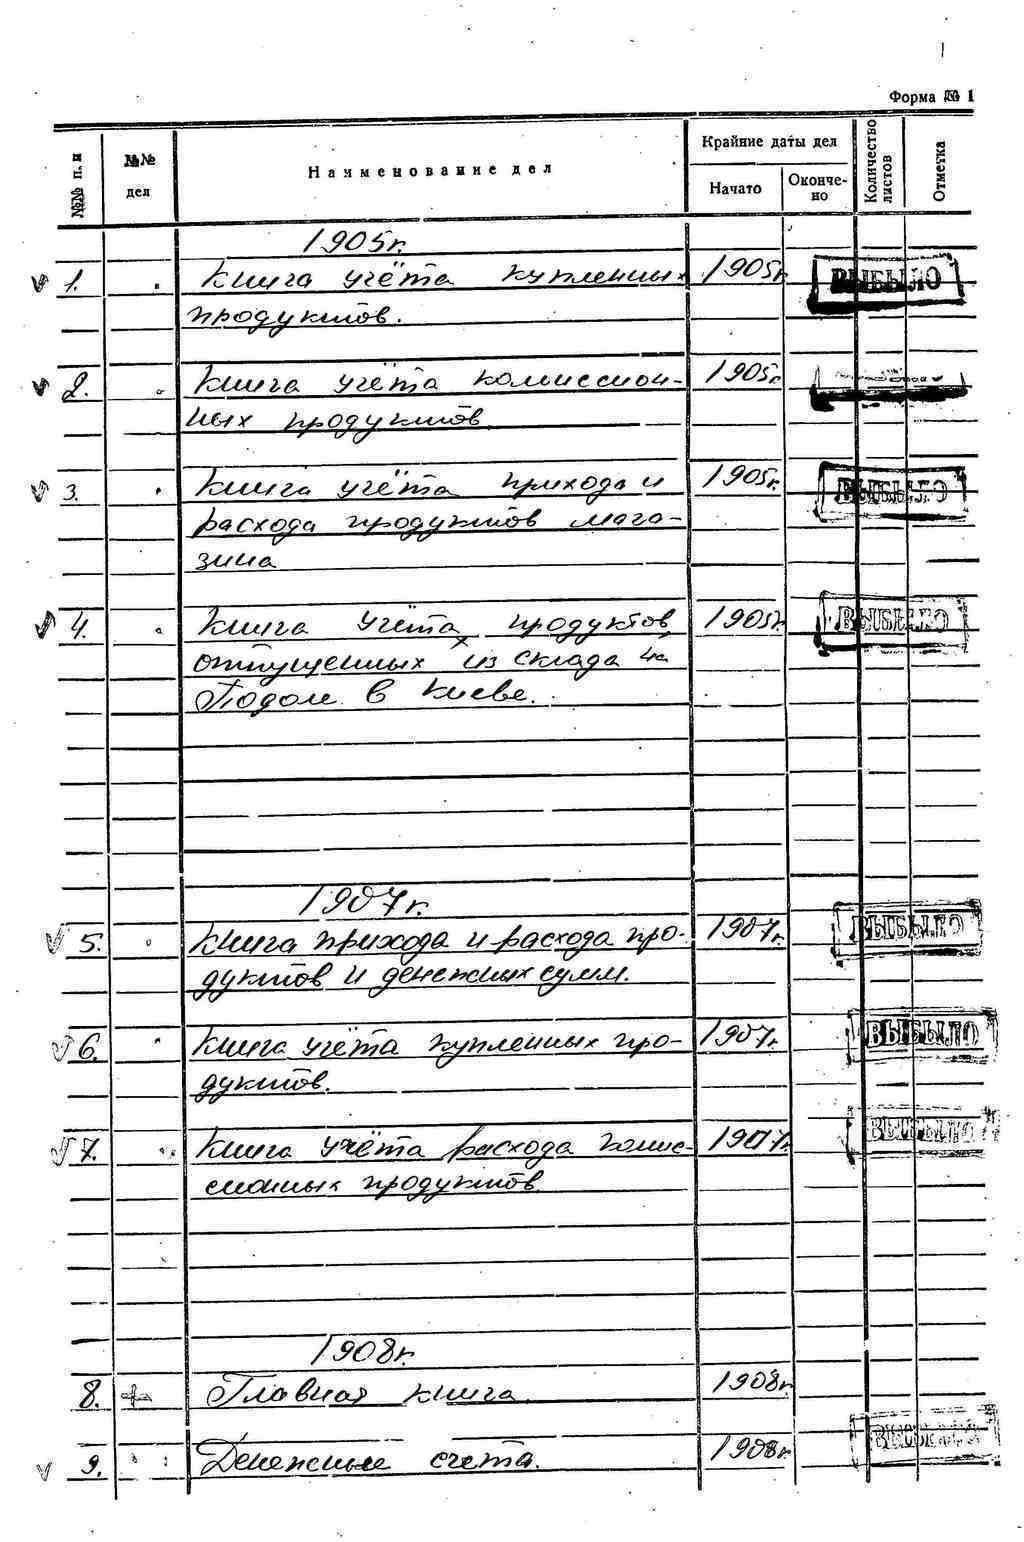 Форма № 1
№№ п. п
№№ дел
Наименование дел
Крайние даты дел
Начато
Окончено
Количество листов
Отметка
1905г.
1. Книга учёта купленных 1905г. ВЫБЫЛО
продуктов.
2. Книга учёта комиссион- 1905г.
ных продуктов
3. Книга учёта прихода и 1905г. ВЫБЫЛО
расхода продуктов мага-
зина
4. Книга учёта продуктов, 1905г. ВЫБЫЛО
отпущенных из склада на
Подоле в Киеве.
1907г.
5. Книга прихода и расхода про- 1907г. ВЫБЫЛО
дуктов и денежных сумм.
6. Книга учёта купленных про- 1907г. ВЫБЫЛО
дуктов.
7. Книга учёта расхода комис- 1907г. ВЫБЫЛО
сионных продуктов.
1908г.
8. Главная книга. 1908г.
9. Денежные счета. 1908г. ВЫБЫЛО